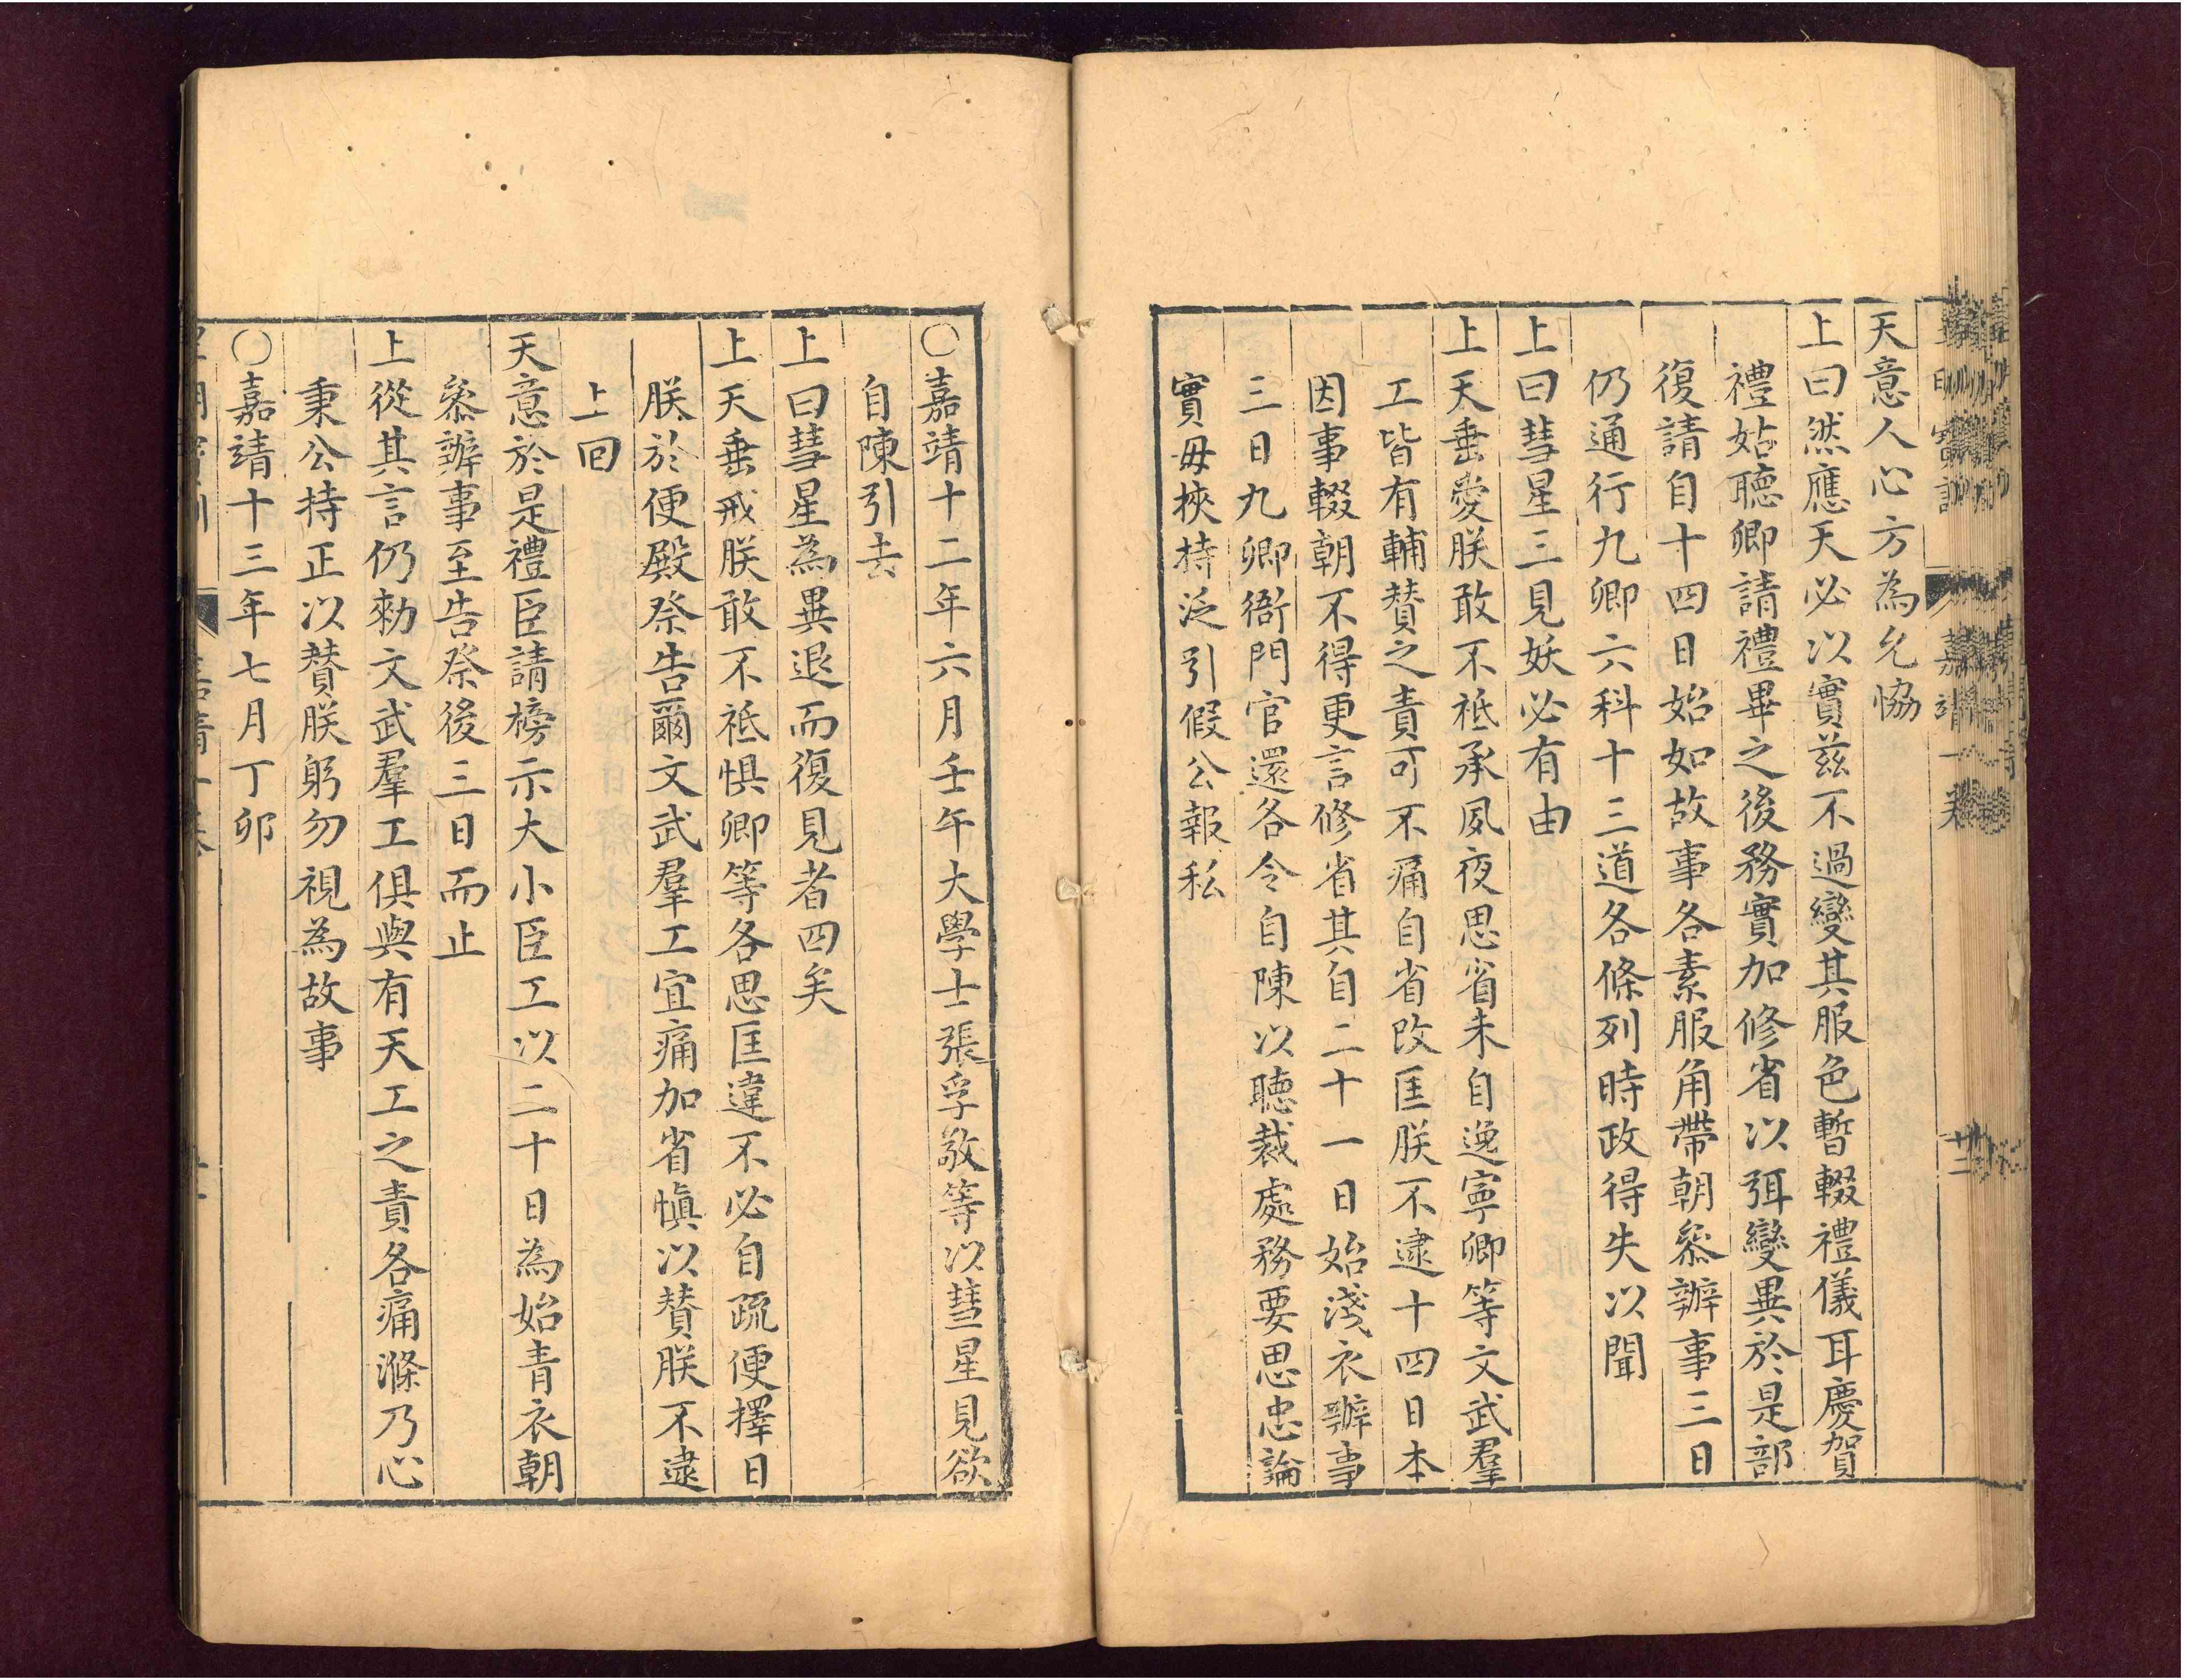 天意人心方為允恊
上曰然應天必以實茲不過變其服色暫輟禮儀耳慶賀
禮姑聽卿請禮畢之後務實加修省以弭變異於是部
復請自十四日始如故事各素服角帶朝叅辦事三日
仍通行九卿六科十三道各條列時政得失以聞
上曰彗星三見妖必有由
上天垂愛朕敢不祗承夙夜思省未自逸寧卿等文武羣
工皆有輔賛之責可不痛自省改匡朕不逮十四日本
因事輟朝不得更言修省其自二十一日始淺衣辦事
三日九卿衙門官還各令自陳以聽裁處務要思忠論
實毋挾持泛引假公報私
○嘉靖十二年六月壬午大學士張孚敬等以彗星見欲
自陳引去
上曰彗星為異退而復見者四矣
上天垂戒朕敢不祗惧卿等各思匡違不必自疏便擇日
朕於便殿祭告爾文武羣工宜痛加省愼以賛朕不逮
上回
天意於是禮臣請榜示大小臣工以二十日為始青衣朝
叅辦事至告祭後三日而止
上從其言仍勑文武羣工俱與有天工之責各痛滌乃心
秉公持正以賛朕躬勿視為故事
○嘉靖十三年七月丁卯